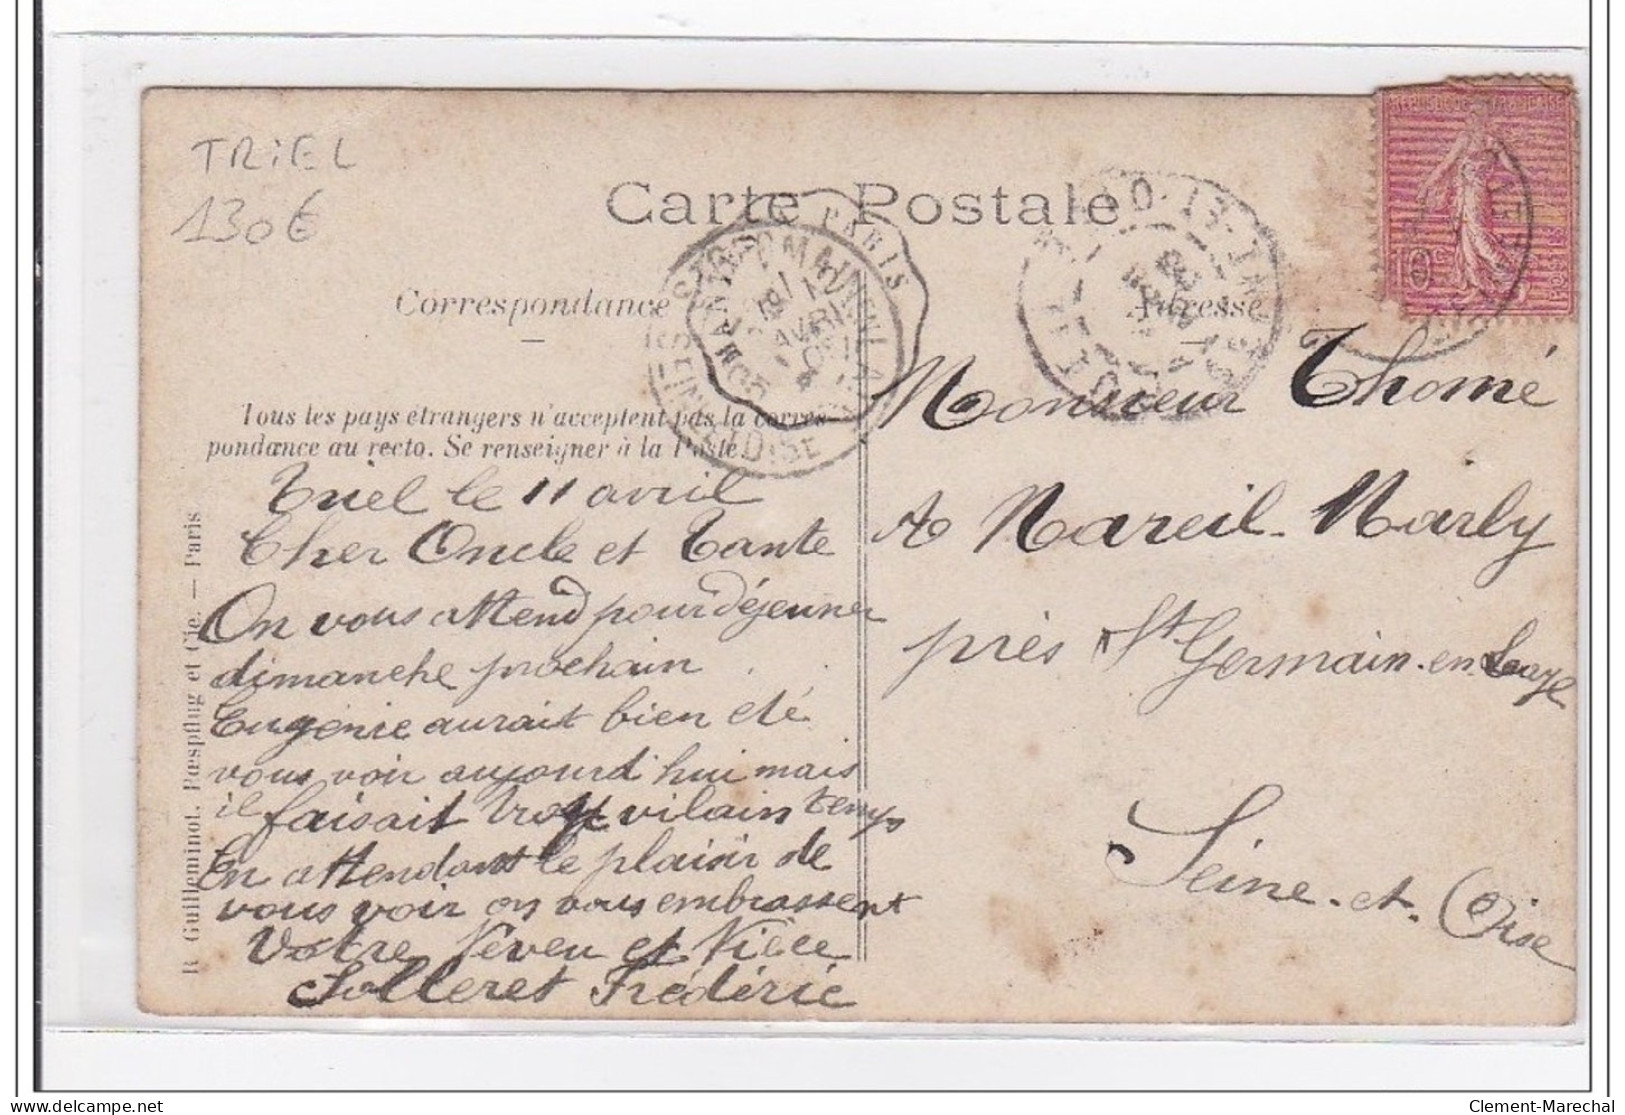 TRiEL
130€
Carte Postale
Correspondance
Adresse
Tous les pays étrangers n'acceptent pas la corres-
pondance au recto. Se renseigner à la Poste.
R. Guilleminot, Bœspflug et Cie. — Paris
Triel le 11 avril
Cher Oncle et Tante
On vous attend pour déjeuner
dimanche prochain
Eugénie aurait bien été
vous voir aujourd'hui mais
il faisait trop vilain temps
En attendant le plaisir de
vous voir on vous embrassent
Votre Neveu et Nièce
Solleret Frédéric
Monsieur Thomé
A Mareil-Marly
près St Germain-en-Laye
Seine-et-Oise
REPUBLIQUE FRANÇAISE
10c
POSTES
PARIS
AVRIL
SEINE ET OISE
Clement-Marechal